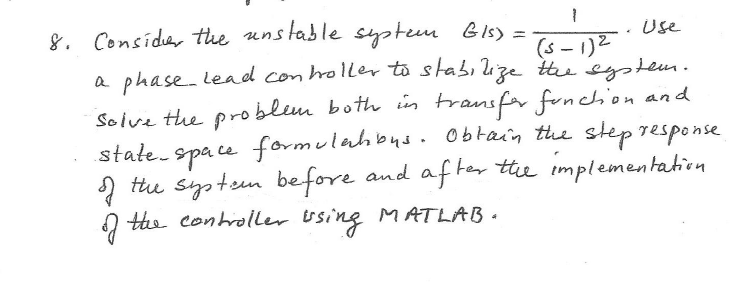 8. Consider the unstable system G(s) = 1 / (s - 1)² . Use
a phase-lead controller to stabilize the system.
Solve the problem both in transfer function and
state-space formulations. Obtain the step response
of the system before and after the implementation
of the controller using MATLAB.